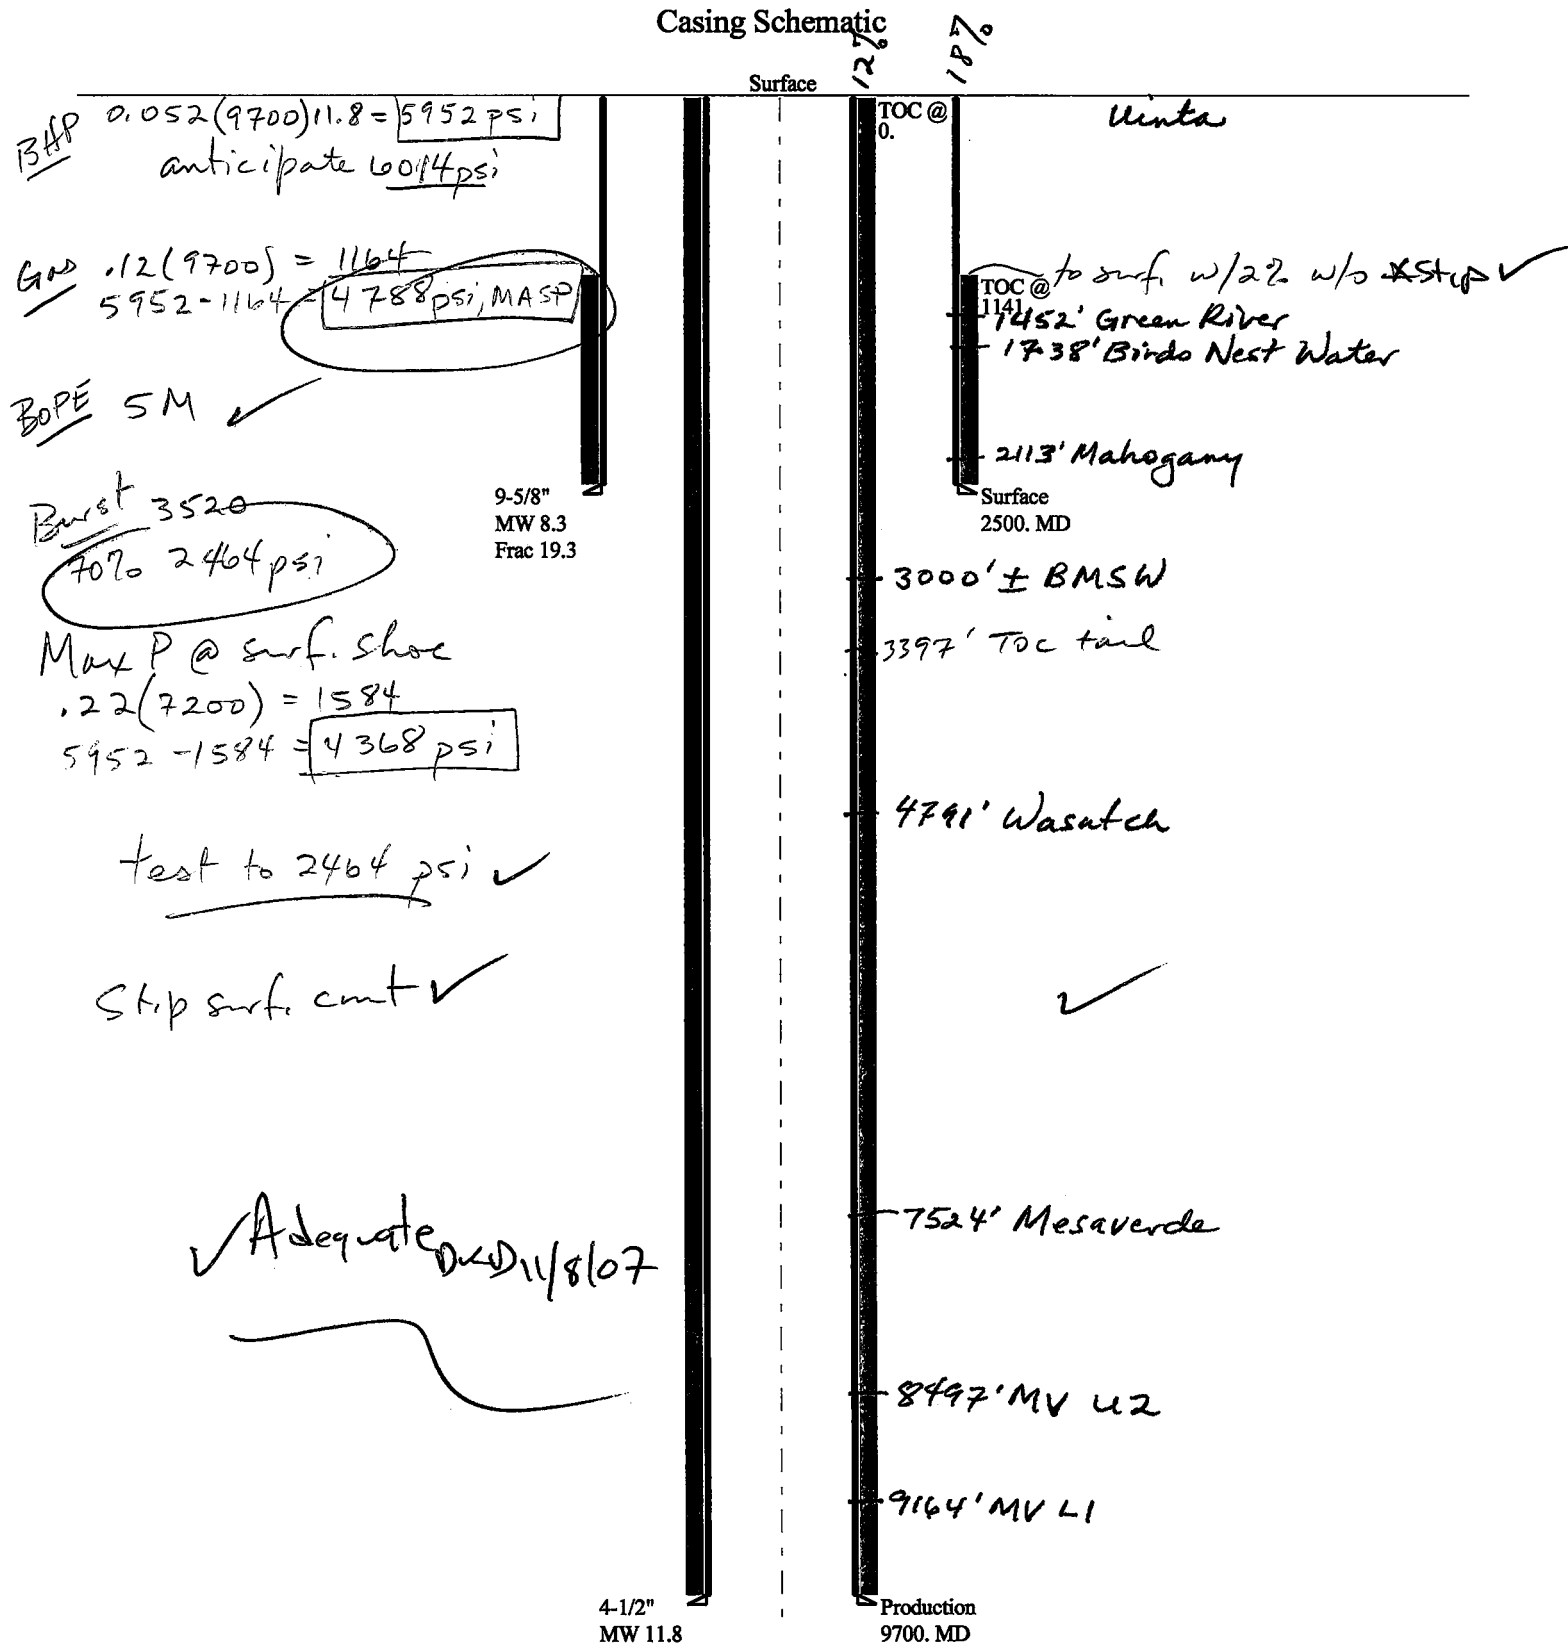 Casing Schematic
12%
18%
Surface
BHP 0.052(9700)11.8 = 5952 psi
anticipate 6014 psi
Gas .12(9700) = 1164
5952-1164 = 4788 psi, MASP
BOPE 5M ✓
Burst 3520
70% 2464 psi
Max P @ surf. shoe
.22(7200) = 1584
5952-1584 = 4368 psi
test to 2464 psi ✓
Stip surf. cmt ✓
✓ Adequate DKD 11/8/07
9-5/8"
MW 8.3
Frac 19.3
4-1/2"
MW 11.8
TOC @
0.
Uinta
to surf. w/2% w/o *Stip ✓
TOC @
1141.
1452' Green River
1738' Birds Nest Water
2113' Mahogany
Surface
2500. MD
3000' ± BMSW
3397' TOC tail
4791' Wasatch
✓
7524' Mesaverde
8497' MV U2
9164' MV L1
Production
9700. MD